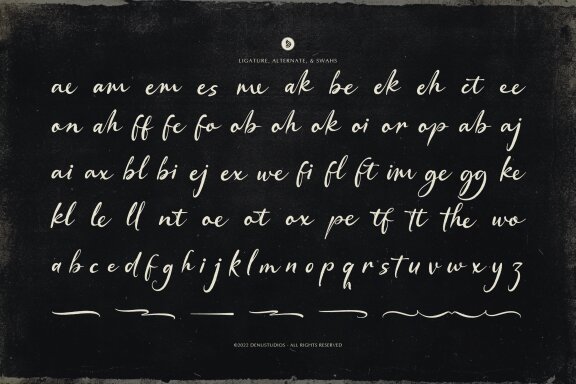 LIGATURE, ALTERNATE, & SWAHS
ae am em es me ak be ek eh ct ee
on ah ff fc fo ob oh ok oi or op ab aj
ai ax bl bi ej ex we fi fl ft im ge gg ke
kl le ll nt oe ot ox pe tf tt the wo
a b c e d f g h i j k l m n o p q r s t u v w x y z
©2022 DENUSTUDIOS - ALL RIGHTS RESERVED